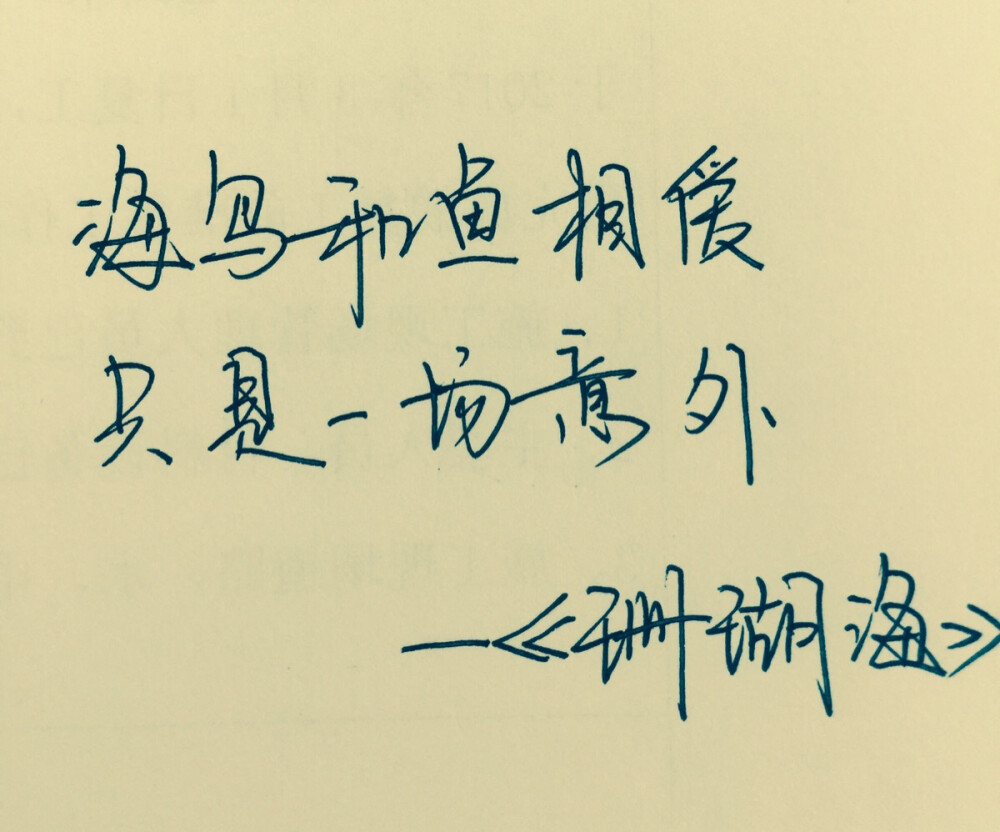 海鸟和鱼相爱
只是一场意外
—《珊瑚海》